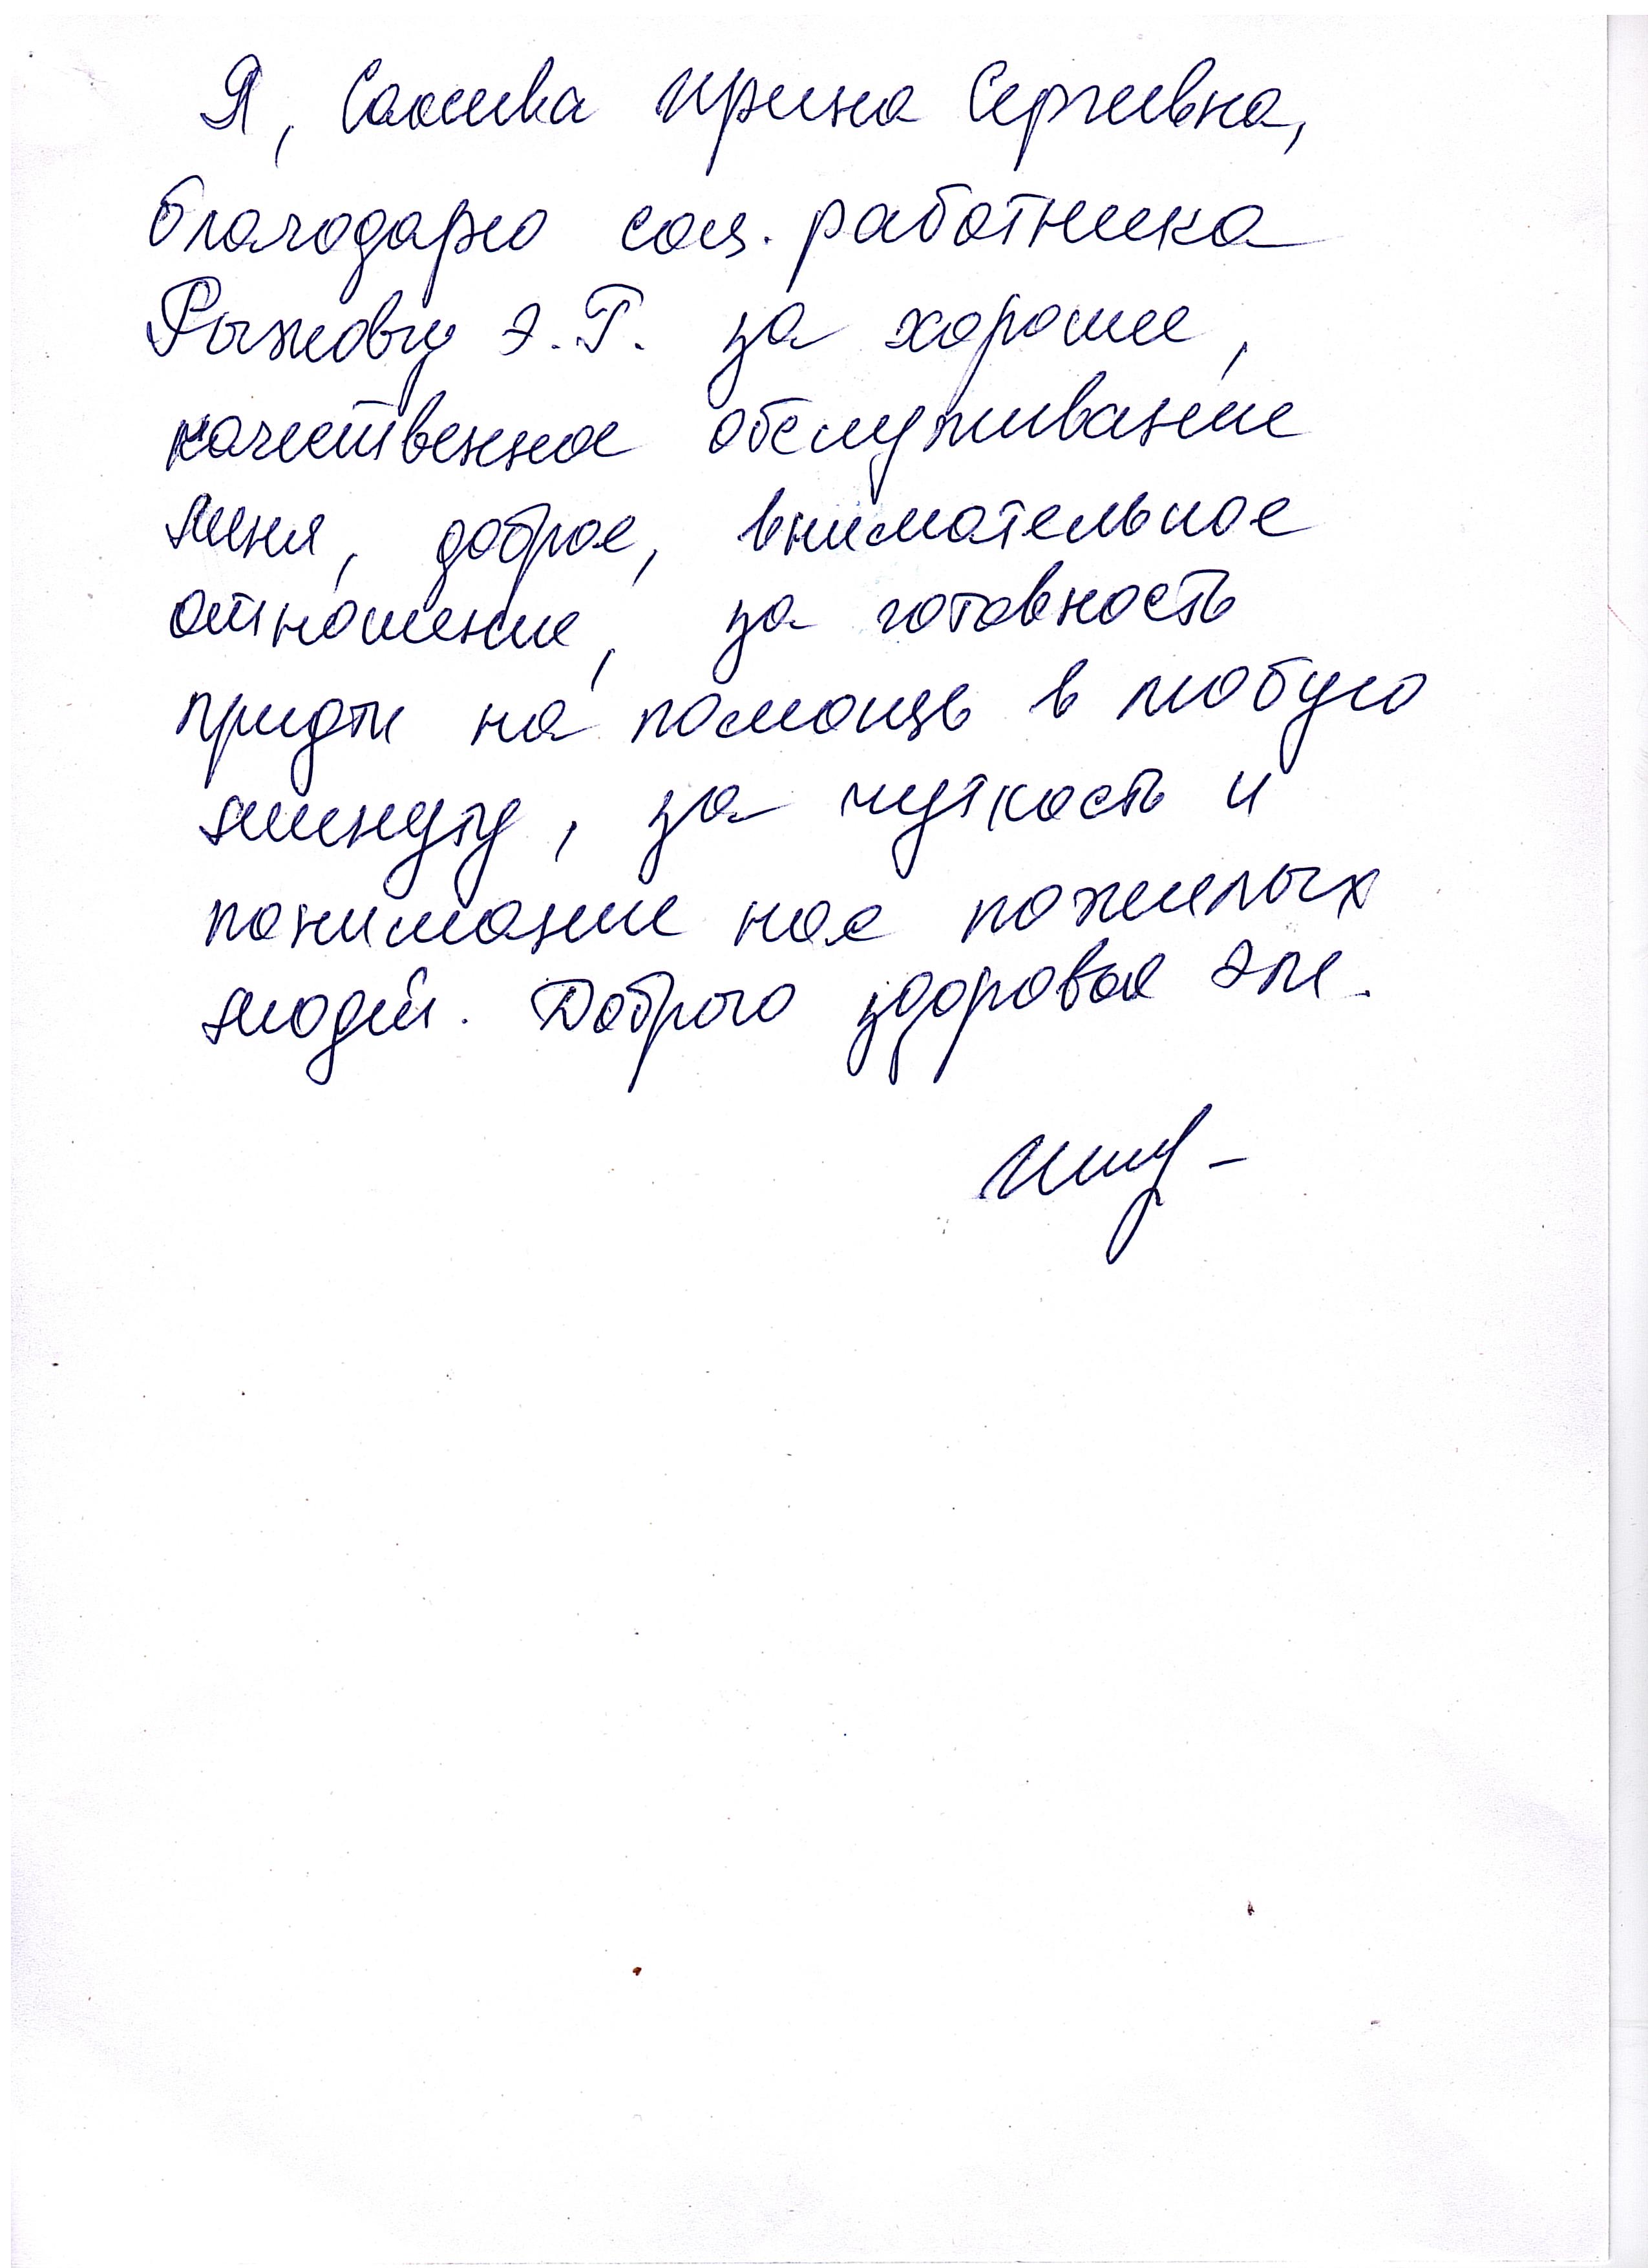 Я, Ирина Сергеевна,
благодарю соц. работника
Рыжову Э.Г. за хорошее,
качественное обслуживание
меня, доброе, внимательное
отношение, за готовность
придти на помощь в любую
минуту, за чуткость и
понимание нас пожилых
людей. Доброго здоровья Эле.